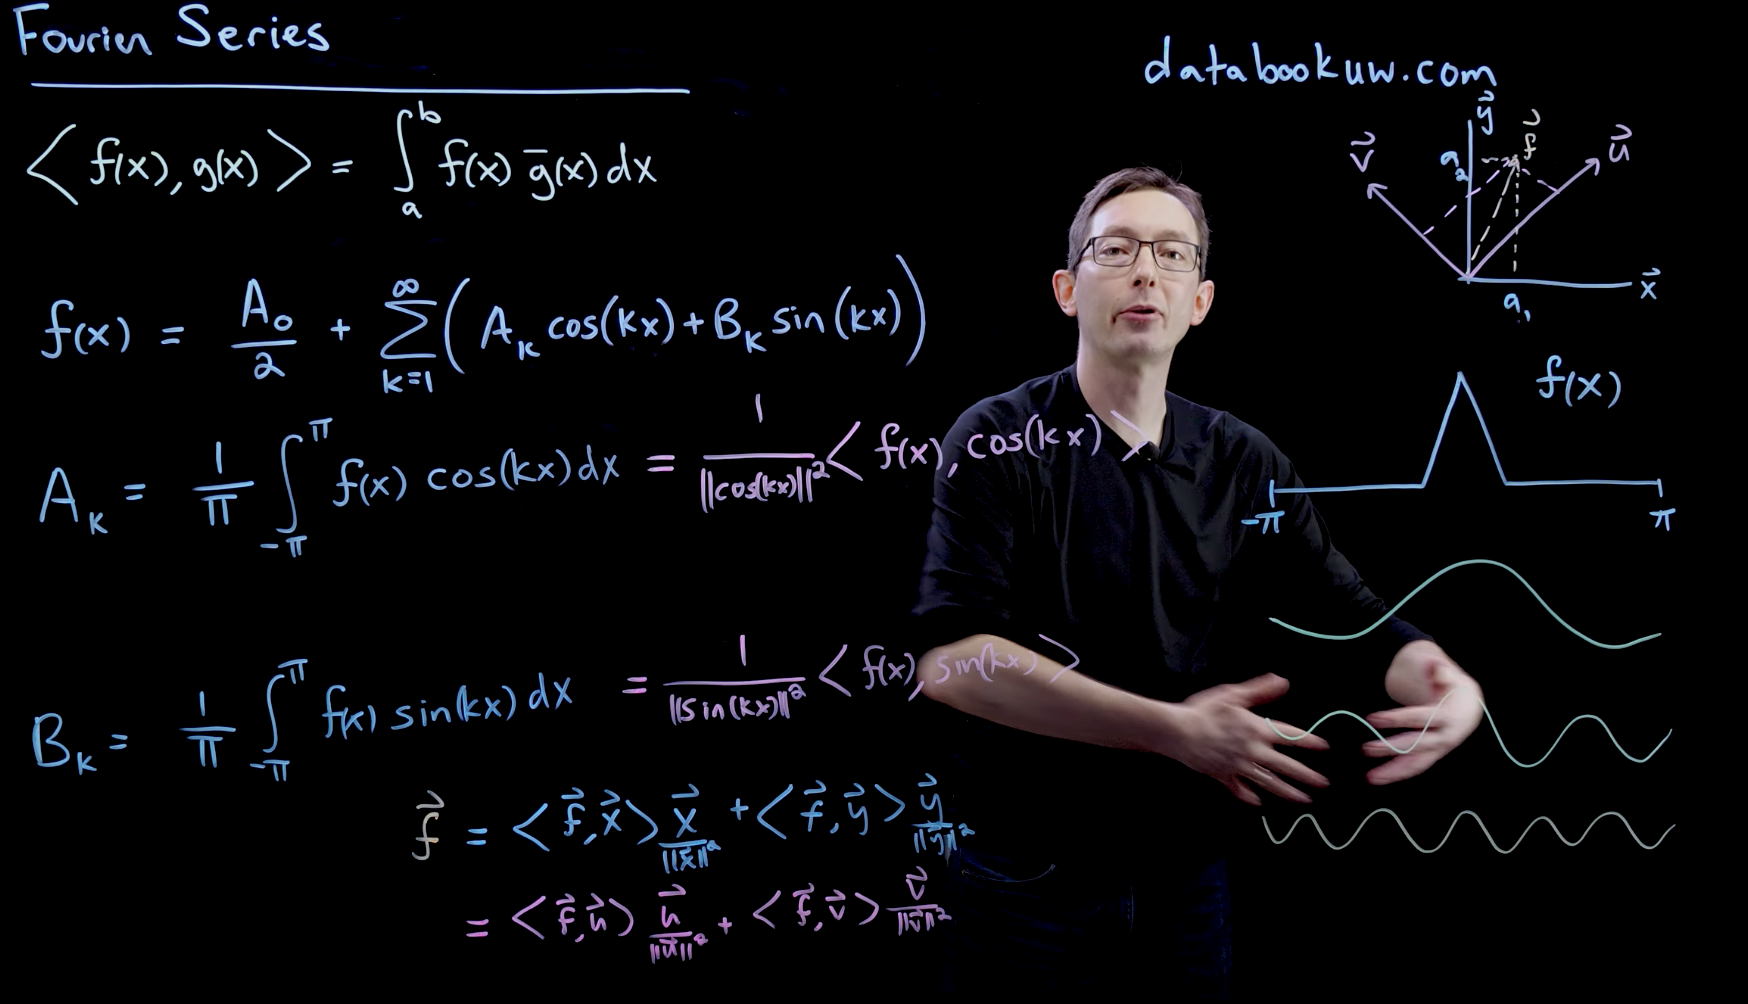 Fourier Series
databookuw.com
⟨ f(x), g(x) ⟩ = ∫_a^b f(x) g̅(x) dx
f(x) = A₀/2 + ∑_{k=1}^∞ ( A_k cos(kx) + B_k sin(kx) )
A_k = 1/π ∫_{-π}^{π} f(x) cos(kx) dx = 1/||cos(kx)||² ⟨ f(x), cos(kx) ⟩
B_k = 1/π ∫_{-π}^{π} f(x) sin(kx) dx = 1/||sin(kx)||² ⟨ f(x), sin(kx) ⟩
f⃗ = ⟨ f⃗, x⃗ ⟩ x⃗/||x⃗||² + ⟨ f⃗, y⃗ ⟩ y⃗/||y⃗||²
= ⟨ f⃗, u⃗ ⟩ u⃗/||u⃗||² + ⟨ f⃗, v⃗ ⟩ v⃗/||v⃗||²
y⃗
f⃗
v⃗
u⃗
a₂
x⃗
a₁
f(x)
-π
π